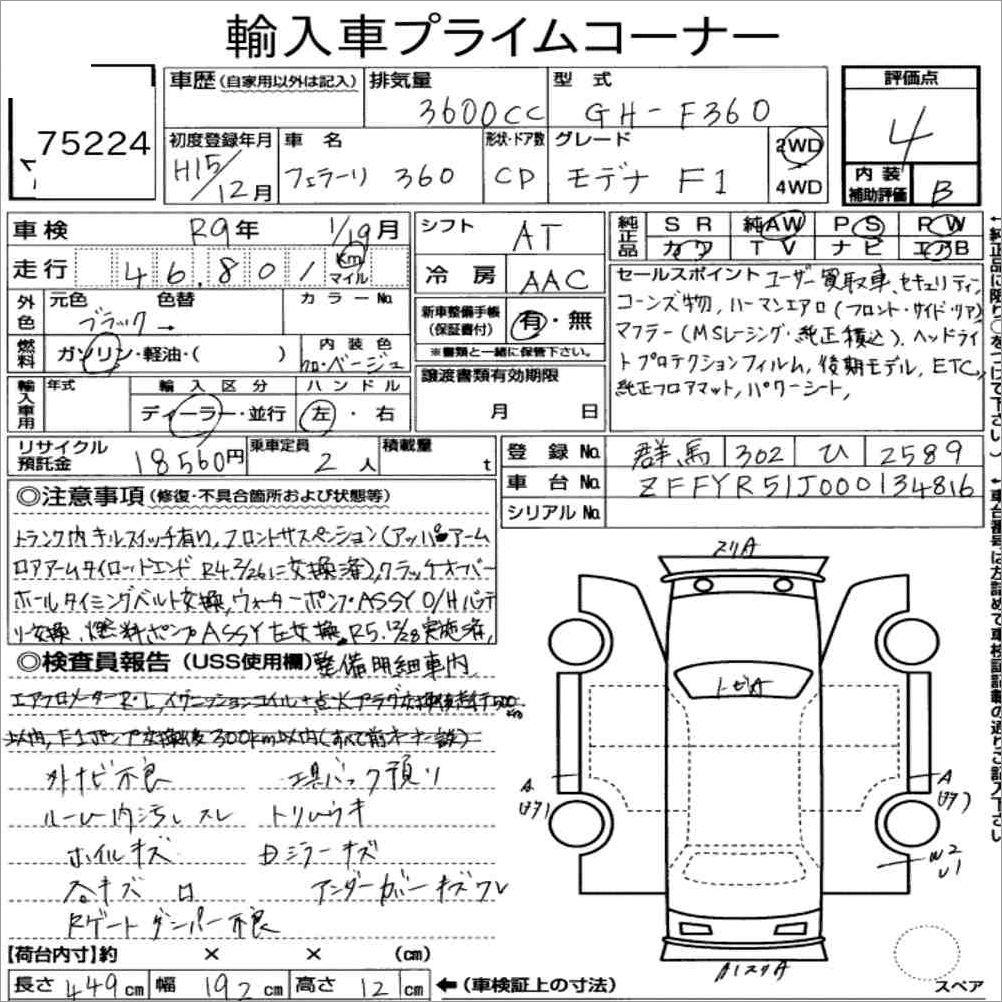 輸入車プライムコーナー
75224
車歴 (自家用以外は記入) 排気量 3600CC 型式 GH-F360
評価点 4
初度登録年月 H15/12月 車名 フェラーリ 360 形状・ドア数 CP グレード モデナ F1 2WD 4WD
内装補助評価 B
車検 R9年 1/19月
走行 46,801 km マイル
シフト AT
冷房 AAC
純正品 SR 純AW PS PW
カワ TV ナビ エアB
外色 元色 ブラック → 色替 カラーNo.
燃料 ガソリン・軽油・( ) 内装色 クロ・ベージュ
新車整備手帳 (保証書付) 有・無
※書類と一緒に保管下さい。
セールスポイント ユーザー買取車、セキュリティ、
コーンズ物、ハーマンエアロ(フロント・サイド・リア)
マフラー(MSレーシング・純正積込)、ヘッドライ
トプロテクションフィルム、後期モデル、ETC、
純正フロアマット、パワーシート、
輸入車用 年式 輸入区分 ディーラー・並行 ハンドル 左・右
譲渡書類有効期限 月 日
リサイクル預託金 18560円 乗車定員 2人 積載量 t
登録No. 群馬 302 ひ 2589
車台No. ZFFYR51J000134816
シリアルNo.
◎注意事項 (修復・不具合箇所および状態等)
トランク内キルスイッチ有り、フロントサスペンション(アッパーアーム
ロアアームタイロッドエンド R4 2/26に交換済)、クラッチオーバー
ホールタイミングベルト交換、ウォーターポンプASSY O/Hバッテ
リ交換、燃料ポンプASSY左交換。R5.12/28実施済、
◎検査員報告 (USS使用欄) 整備明細車内
エアフロメーターR・L、イグニッションコイル+点火プラグ交換後走行500km
以内、F1ポンプ交換後300km以内(すべて前オーナー談)
外ナビ不良 工具バック預リ
ルーム内汚レスレ トリムウキ
ホイルキズ Dミラーキズ
各キズ凹 アンダーカバーキズワレ
Rゲートダンパー不良
スリA
トビA
A
(ツヤ)
A
(ツヤ)
W2
U1
A1スリA
スペア
【荷台内寸】約 × × (cm)
長さ 449cm 幅 192cm 高さ 12cm ←(車検証上の寸法)
←純正品に限り○をつけて下さい。)
←車台番号は左詰めで車検証記載の通りご記入下さい